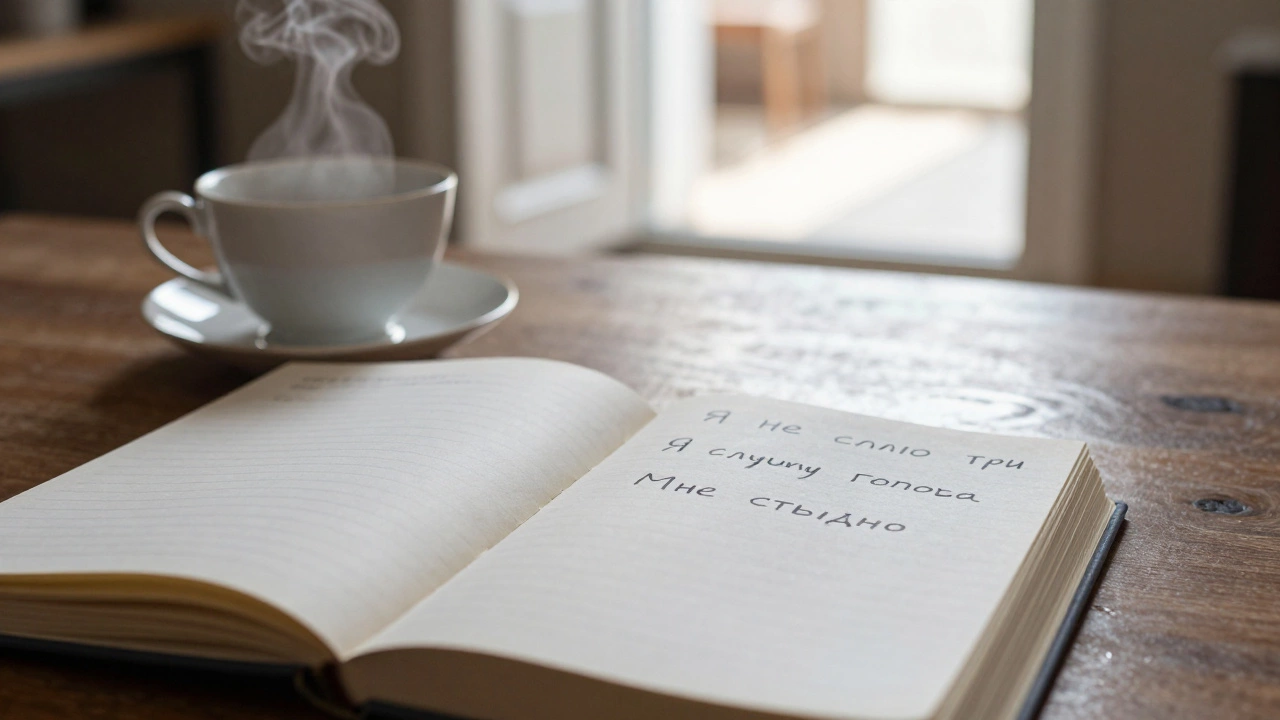 Я не сплю три
Я слушу голоса
Мне стыдно